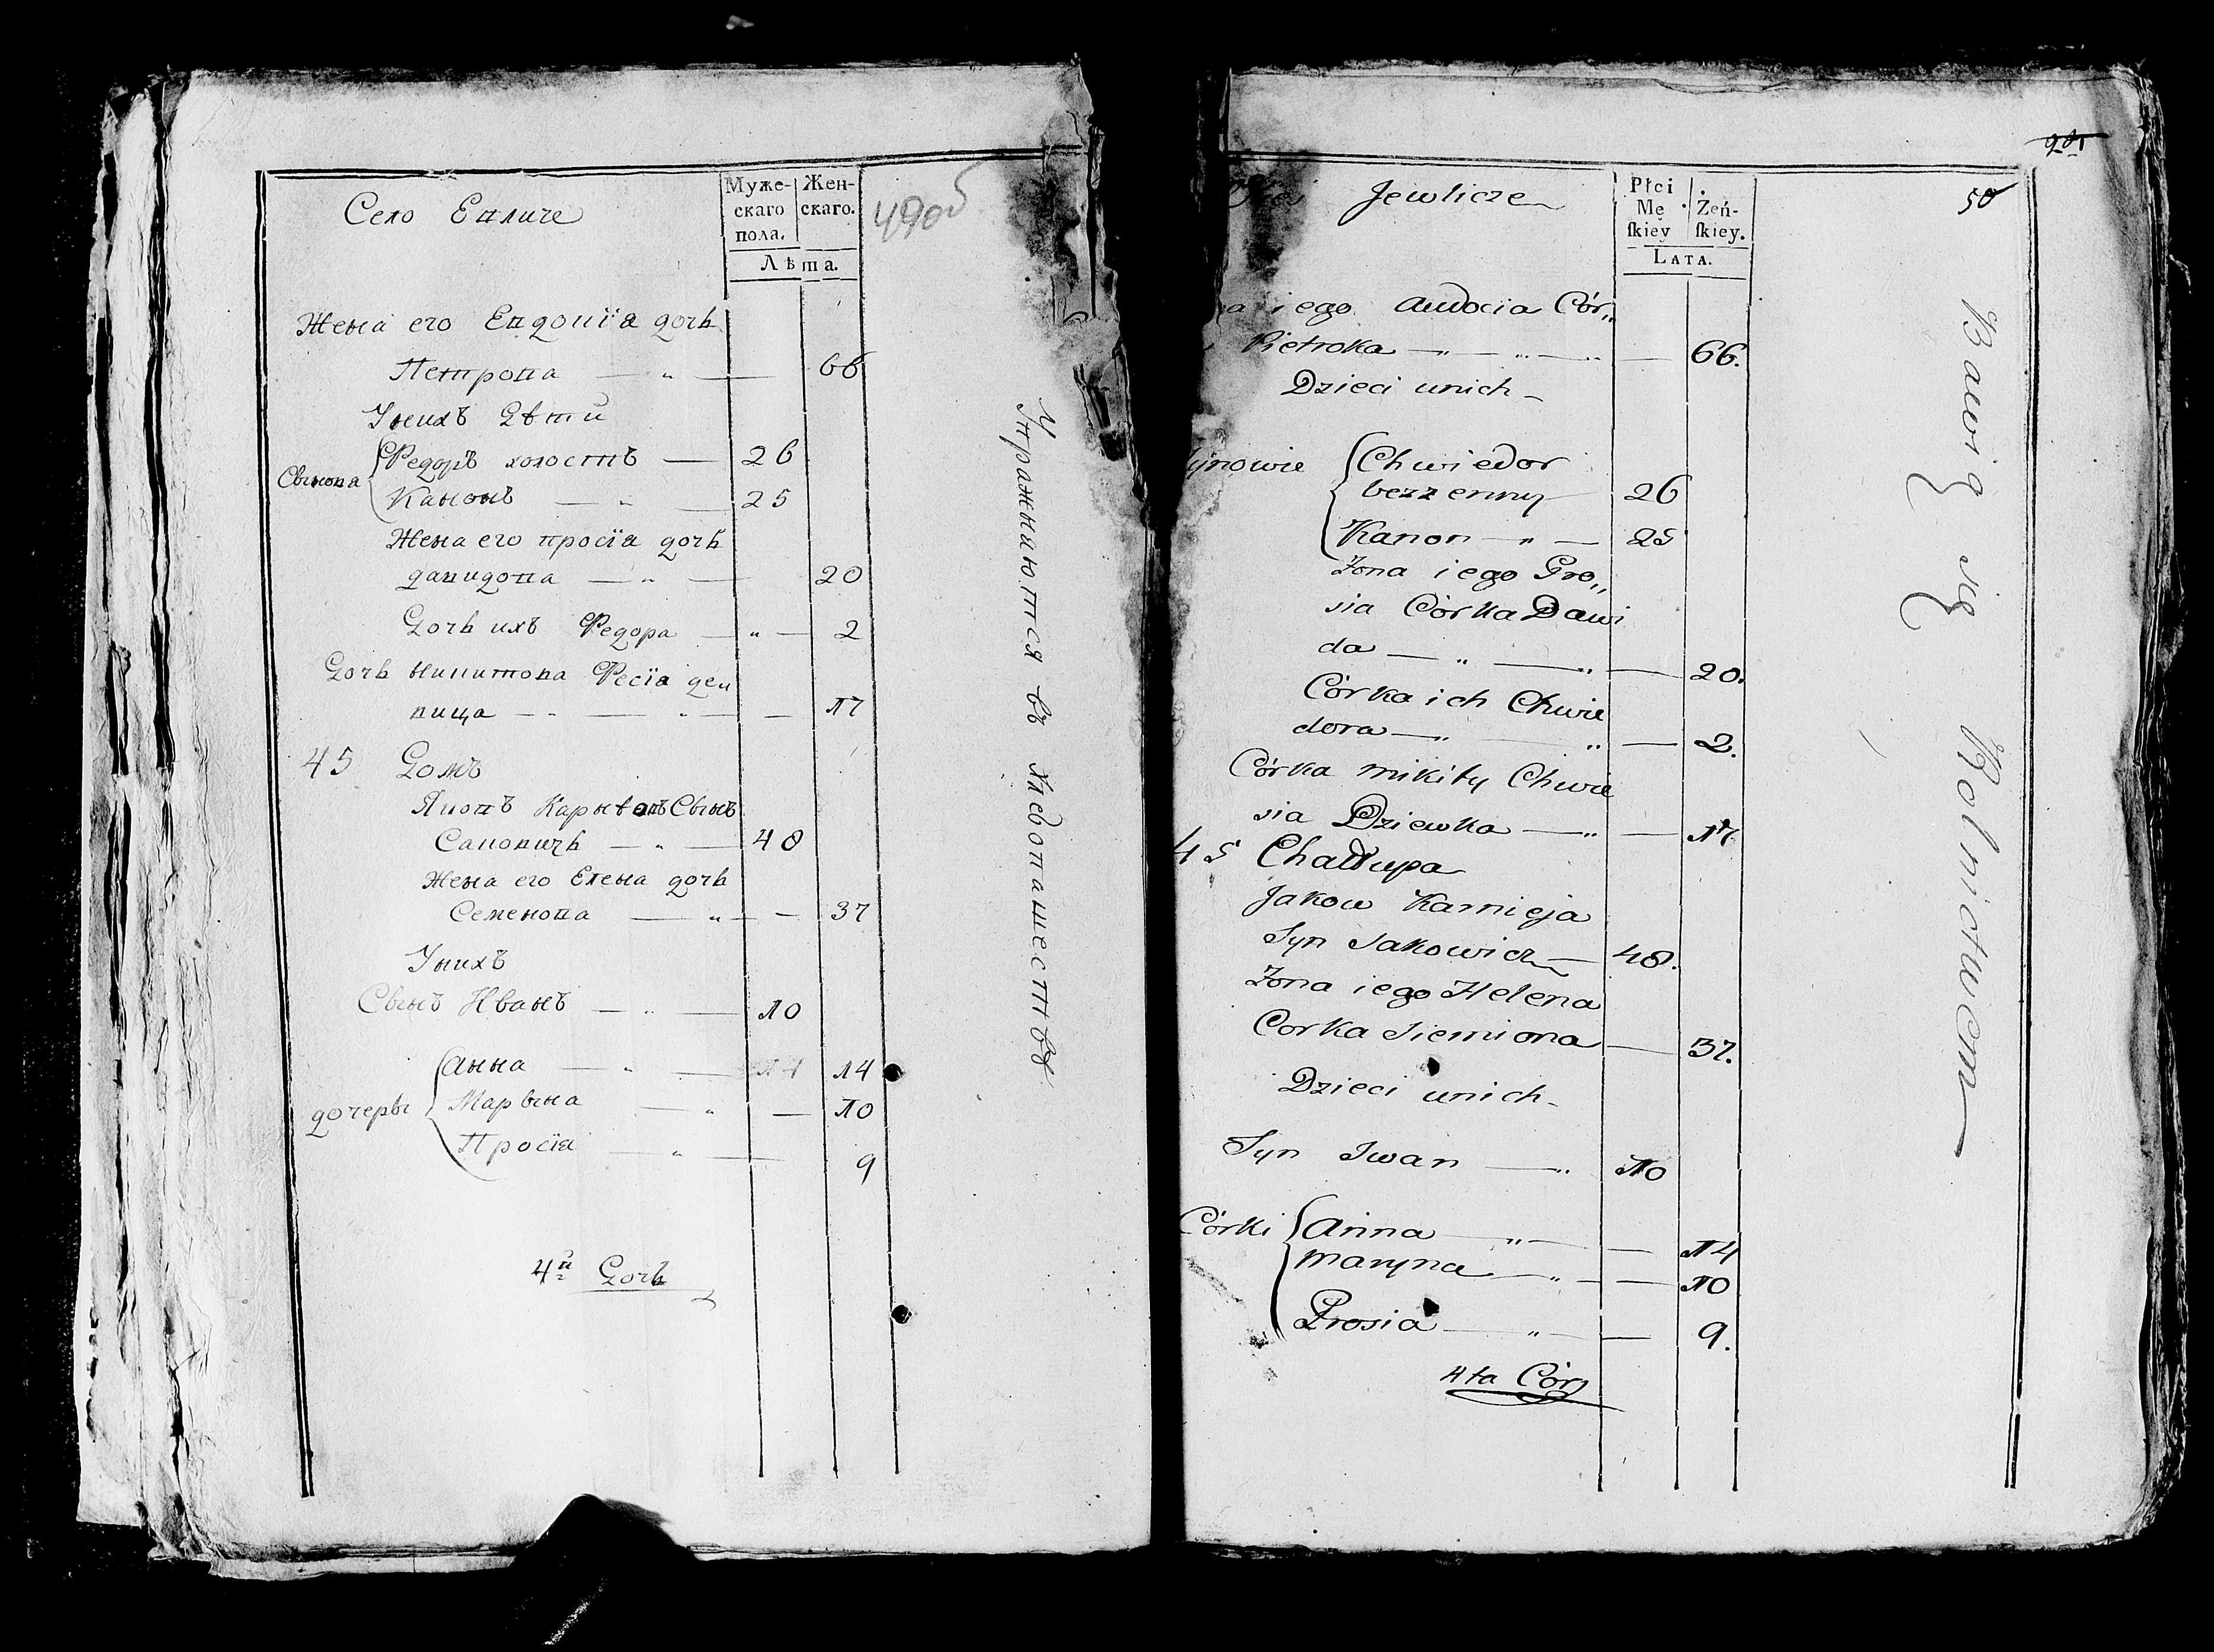 Село Евличе
Муже-
скаго
пола.
Жен-
скаго.
Лѣта.
49об
Жена его Евдокїя дочь
Петрова — " — 66
Унихъ Дѣти
Сынова
Федоръ холостъ — 26
Канонъ — " — 25
Жена его просїя дочь
давидова — " — 20
Дочь ихъ Федора — " — 2
Дочь никитова Фесїя дев
вица — " — " — 17
45 Домъ
Яковъ Карнѣевъ Сынъ
Саковичь — " — 48
Жена его Елена дочь
Семенова — " — 37
Унихъ
Сынъ Иванъ — " — 10
дочеры
Анна — " — 14 14
Марына — " — 10
Просїя — " — 9
4й Дочь
Упражняются въ хлебопашествѣ
201
50
Jewlicze
Płci
Mę
skiey
Żeń-
skiey.
LATA.
iego Awdocia Cór„
Pietroka — " — " — 66.
Dzieci unich
ynowie
Chwiedor
bezzenny 26
Kanon — " — 25
Zona iego Pro„
sia Córka Dawi
da — " — " — 20.
Córka ich Chwie
dora — " — " — 2.
Córka mikity Chwie
sia Dziewka — " — 17
45 Chałupa
Jakow Karnieja
Syn Sakowicz — 48.
Zona iego Helena
Corka Siemiona — 37.
Dzieci unich
Syn Iwan — " 10
Córki
Anna — " — 14
Maryna — " — 10
Prosia — " — 9.
4ta Cór
Bawią się Rolnictwem